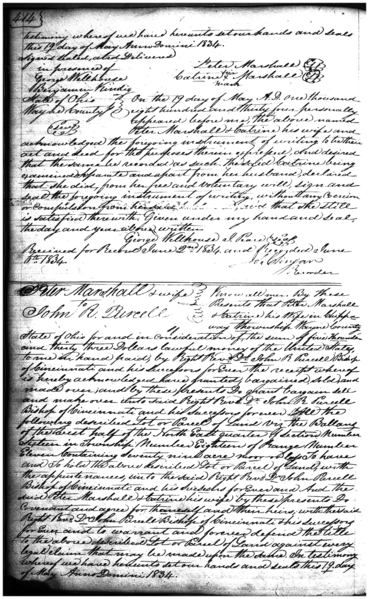 414
testimony whereof we have hereunto set our hands and seals
this 19 day of May Anno Domini 1834.
Signed Sealed and Delivered
in presence of Peter Marshall
George Wellhouse Catrine Marshall
Benjamin mark
State of Ohio On the 19 day of May A.D. one thousand
Wayne County eight hundred and thirty four personally
appeared before me, the above named
Peter Marshall & Catrine his wife and
acknowledged the foregoing instrument of writing to be their
act and deed for the purposes therein expressed, and desired
that the same be recorded as such, the said Catrine being
examined separate and apart from her husband declared
that she did, from her free and voluntary will, sign and
seal the foregoing instrument of writing, without any coercion
or compulsion from her said and that she
is satisfied therewith. Given under my hand and seal
the day and year above written
George Wellhouse
Received for Record June 2nd 1834 and Recorded June
1834.
Recorder
Peter Marshall & wife Know all men By these
to Presents that Peter Marshall
John R. Purcell & Catrine his Wife in
Township Wayne County
State of Ohio for and in consideration of the sum of five Hundred
and thirty three Dollars lawful money of the United States
to me in hand paid, by Right Revd Dr. John R. Purcell Bishop
of Cincinnati and his Successors for Ever the receipt whereof
is hereby acknowledged, have granted, bargained, sold and
made over, and by these Presents Do grant Bargain Sell
and make over unto said Right Revd Dr. John R. Purcell
Bishop of Cincinnati and his Successors forever all the
following described Lot or Parcel of Land
the West half of the North East quarter of Section Number
Sixteen in Township Number Eighteen of Range Number
Eleven Containing Seventy nine acres more or less To have
and To hold the above described Lot or Parcel of Land, with
the appurtenances, unto the said Right Revd Dr. John Purcell
Bishop of Cincinnati and his Successors for Ever and the
said Peter Marshall & Catrine his wife by these presents Do
Covenant and agree for themselves and their heirs, with the said
Right Revd Dr. John Purcell Bishop of Cincinnati & his Successors
for Ever, and to warrant and forever defend the title
to the above described Lot or Parcel of Land against every
legal claim that may be made upon the same. In testimony
whereof we have hereunto set our hands and seals this 19 day
of May Anno Domini 1834.